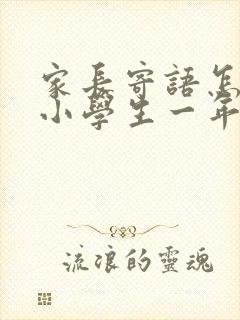 家長寄語怎
小學生一年
流浪的靈魂